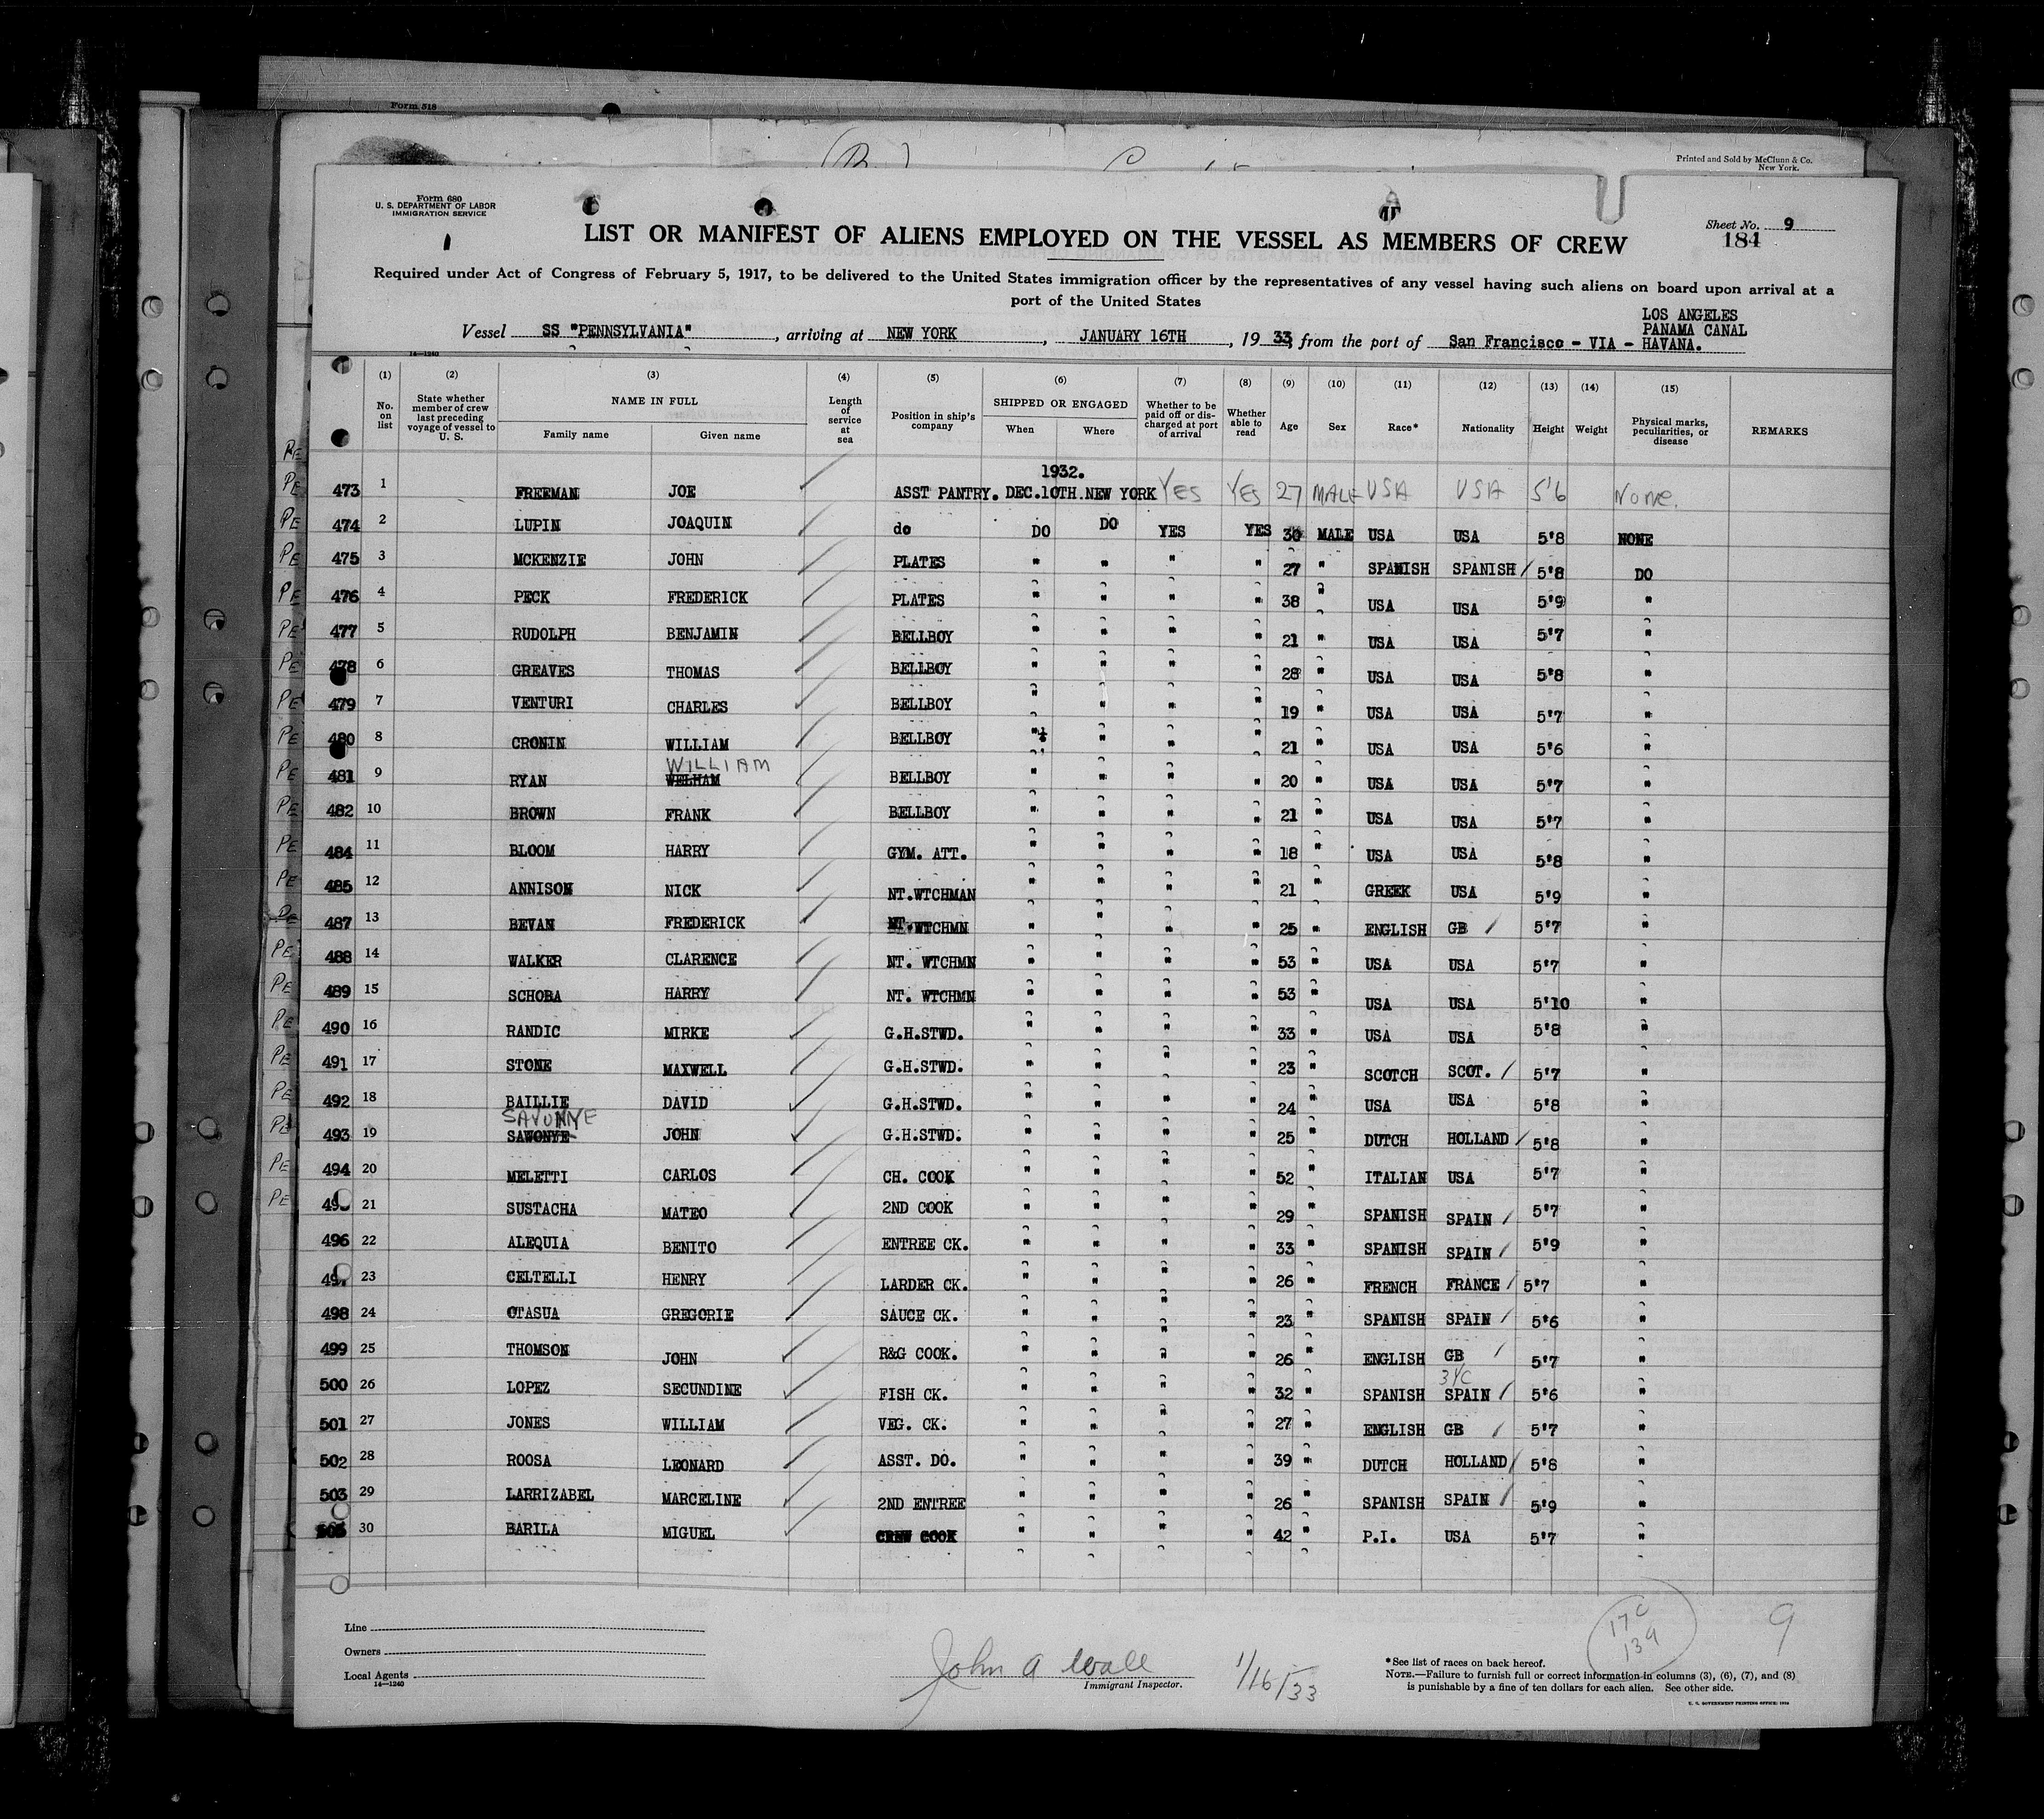 Form 518
Printed and Sold by McClunn & Co.
New York.
Form 680
U. S. DEPARTMENT OF LABOR
IMMIGRATION SERVICE
Sheet No. 9
184
LIST OR MANIFEST OF ALIENS EMPLOYED ON THE VESSEL AS MEMBERS OF CREW
Required under Act of Congress of February 5, 1917, to be delivered to the United States immigration officer by the representatives of any vessel having such aliens on board upon arrival at a
port of the United States
LOS ANGELES
PANAMA CANAL
Vessel SS "PENNSYLVANIA", arriving at NEW YORK, JANUARY 16TH, 1933, from the port of San Francisco - VIA - HAVANA.
14-1240
(1) (2) (3) (4) (5) (6) (7) (8) (9) (10) (11) (12) (13) (14) (15)
No. on list State whether member of crew last preceding voyage of vessel to U. S. NAME IN FULL Family name Given name Length of service at sea Position in ship's company SHIPPED OR ENGAGED When Where Whether to be paid off or discharged at port of arrival Whether able to read Age Sex Race* Nationality Height Weight Physical marks, peculiarities, or disease REMARKS
PE
1932.
PE 473 1 FREEMAN JOE ASST PANTRY. DEC.10TH.NEW YORK YES YES 27 MALE USA USA 5'6 None.
PE 474 2 LUPIN JOAQUIN do DO DO YES YES 30 MALE USA USA 5'8 NONE
PE 475 3 MCKENZIE JOHN PLATES " " " " 27 " SPANISH SPANISH / 5'8 DO
PE 476 4 PECK FREDERICK PLATES " " " " 38 " USA USA 5'9 "
PE 477 5 RUDOLPH BENJAMIN BELLBOY " " " " 21 " USA USA 5'7 "
PE 478 6 GREAVES THOMAS BELLBOY " " " " 28 " USA USA 5'8 "
PE 479 7 VENTURI CHARLES BELLBOY " " " " 19 " USA USA 5'7 "
PE 480 8 CRONIN WILLIAM BELLBOY " " " " 21 " USA USA 5'6 "
WILLIAM
PE 481 9 RYAN WELHAM BELLBOY " " " " 20 " USA USA 5'7 "
PE 482 10 BROWN FRANK BELLBOY " " " " 21 " USA USA 5'7 "
PE 484 11 BLOOM HARRY GYM. ATT. " " " " 18 " USA USA 5'8 "
PE 485 12 ANNISON NICK NT.WTCHMAN " " " " 21 " GREEK USA 5'9 "
PE 487 13 BEVAN FREDERICK NT.WTCHMN " " " " 25 " ENGLISH GB / 5'7 "
PE 488 14 WALKER CLARENCE NT. WTCHMN " " " " 53 " USA USA 5'7 "
PE 489 15 SCHOBA HARRY NT. WTCHMN " " " " 53 " USA USA 5'10 "
PE 490 16 RANDIC MIRKE G.H.STWD. " " " " 33 " USA USA 5'8 "
PE 491 17 STONE MAXWELL G.H.STWD. " " " " 23 " SCOTCH SCOT. / 5'7 "
PE 492 18 BAILLIE DAVID G.H.STWD. " " " " 24 " USA USA 5'8 "
SAVONYE
PE 493 19 SAWONYE JOHN G.H.STWD. " " " " 25 " DUTCH HOLLAND / 5'8 "
PE 494 20 MELETTI CARLOS CH. COOK " " " " 52 " ITALIAN USA 5'7 "
PE 21 SUSTACHA MATEO 2ND COOK " " " " 29 " SPANISH SPAIN / 5'7 "
496 22 ALEQUIA BENITO ENTREE CK. " " " " 33 " SPANISH SPAIN / 5'9 "
23 CELTELLI HENRY LARDER CK. " " " " 26 " FRENCH FRANCE / 5'7 "
498 24 OTASUA GREGORIE SAUCE CK. " " " " 23 " SPANISH SPAIN / 5'6 "
499 25 THOMSON JOHN R&G COOK. " " " " 26 " ENGLISH GB / 5'7 "
500 26 LOPEZ SECUNDINE FISH CK. " " " " 32 " SPANISH SPAIN / 5'6 "
501 27 JONES WILLIAM VEG. CK. " " " " 27 " ENGLISH GB / 5'7 "
502 28 ROOSA LEONARD ASST. DO. " " " " 39 " DUTCH HOLLAND / 5'8 "
503 29 LARRIZABEL MARCELINE 2ND ENTREE " " " " 26 " SPANISH SPAIN / 5'9 "
30 BARILA MIGUEL CREW COOK " " " " 42 " P.I. USA 5'7 "
Line
Owners
Local Agents
14-1240
John A Wall
Immigrant Inspector.
1/16/33
17 C
139
9
*See list of races on back hereof.
NOTE.—Failure to furnish full or correct information in columns (3), (6), (7), and (8)
is punishable by a fine of ten dollars for each alien. See other side.